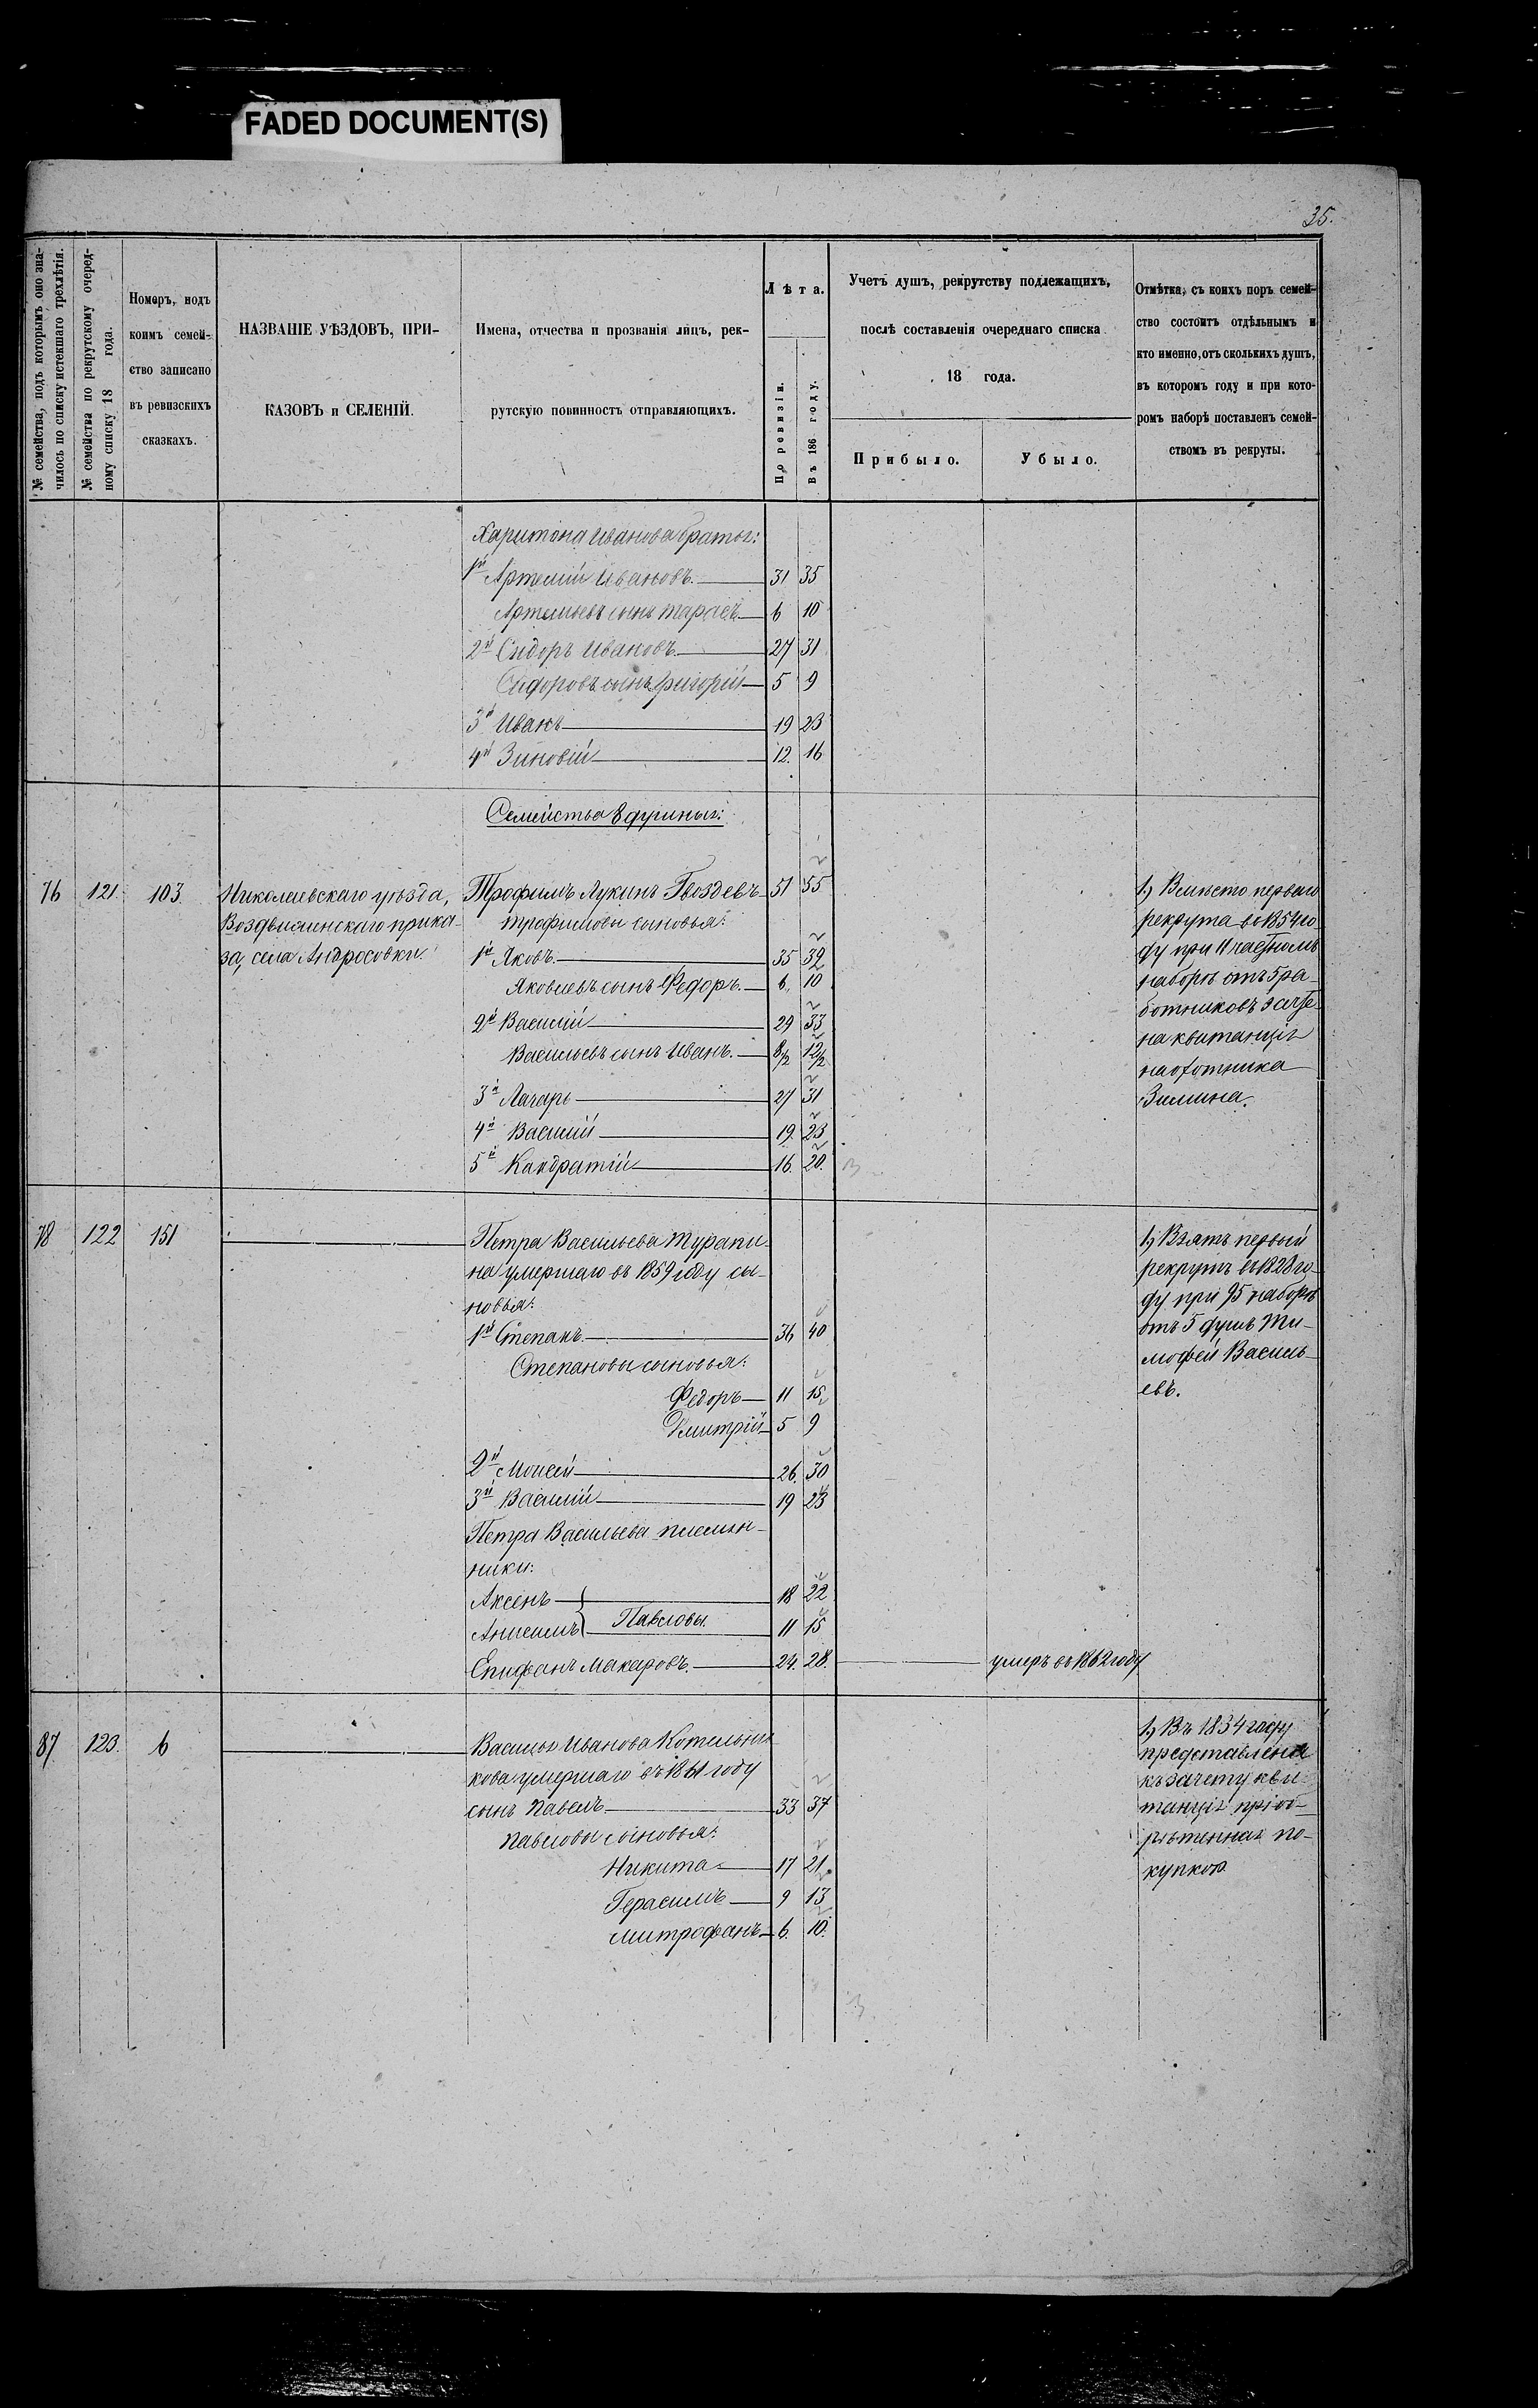 FADED DOCUMENT(S)
35.
№ семейства, подъ которымъ оно зна-
чилось по списку истекшаго трехлѣтія.
№ семейства по рекрутскому очеред-
ному списку 18 года.
Номеръ, подъ
коимъ семей-
ство записано
въ ревизскихъ
сказкахъ.
НАЗВАНІЕ УѢЗДОВЪ, ПРИ-
КАЗОВЪ и СЕЛЕНІЙ.
Имена, отчества и прозванія лицъ, рек-
рутскую повинность отправляющихъ.
Лѣта.
По ревизіи.
Въ 186 году.
Учетъ душъ, рекрутству подлежащихъ,
послѣ составленія очереднаго списка
18 года.
Прибыло.
Убыло.
Отмѣтка, съ коихъ поръ семей-
ство состоитъ отдѣльнымъ и
кто именно, отъ сколькихъ душъ,
въ которомъ году и при кото-
ромъ наборѣ поставленъ семей-
ствомъ въ рекруты.
Харитона Иванова братья:
1й Артемій Ивановъ. 31 35
Артемьевъ сынъ Тарасъ 6 10
2й Сидоръ Ивановъ 27 31
Сидоровъ сынъ Григорій 5 9
3й Иванъ 19 23
4й Зиновій 12. 16
Семейства 8 душныя:
76 121. 103. Николаевскаго уѣзда, Трофимъ Лукинъ Гвоздевъ 51 55
Воздвиженскаго прика- Трофимовы сыновья:
за, села Андросовки. 1й Яковъ. 35 39
Яковлевъ сынъ Федоръ. 6. 10
2й Василій 29 33
Васильевъ сынъ Иванъ. 8/2 12/2
3й Лазарь 27 31
4й Василій 19. 23
5й Кандратій 16. 20.
1) Вмѣсто перваго
рекрута въ 1854 го-
ду при 11 частномъ
наборѣ отъ 5 ра-
ботниковъ зачте-
на квитанція
на охотника
Зимина.
78 122 151 Петра Васильева Турапи-
на умершаго въ 1859 году сы-
новья:
1й Степанъ. 36 40
Степановы сыновья:
Федоръ 11 15
Дмитрій 5 9
2й Моисей 26. 30
3й Василій 19 23
Петра Васильева племян-
ники:
Аксенъ 18 22
Павловы.
Анисимъ 11 15
Епифанъ Макаровъ. 24. 28. умеръ въ 1862 году
1) Взятъ первый
рекрутъ въ 1828 го-
ду при 95 наборѣ
отъ 5 душъ Ти-
мофей Василь-
евъ.
87 123. 6 Василья Иванова Котельни-
кова умершаго въ 1861 году
сынъ Павелъ 33 37
Павловы сыновья:
Никита 17 21
Герасимъ 9 13
Митрофанъ 6. 10.
1) Въ 1834 году
представлена
къ зачету кви-
танція пріоб-
рѣтенная по-
купкою